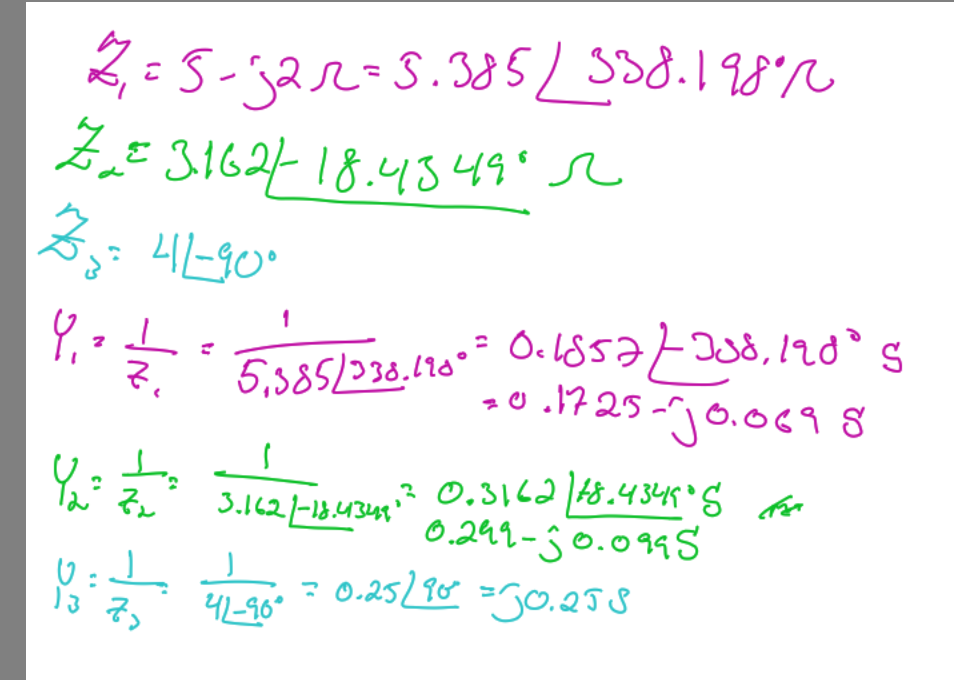 Z₁ = 5 - j2 Ω = 5.385 ∠338.198° Ω
Z₂ = 3.162 ∠-18.4349° Ω
Z₃ = 4∠-90°
Y₁ = 1/Z₁ = 1/(5.385∠338.198°) = 0.1857∠-338.198° S
= 0.1725 - j0.069 S
Y₂ = 1/Z₂ = 1/(3.162∠-18.4349°) = 0.3162∠18.4349° S
0.299 - j0.099S
Y₃ = 1/Z₃ = 1/(4∠-90°) = 0.25∠90° = j0.25S